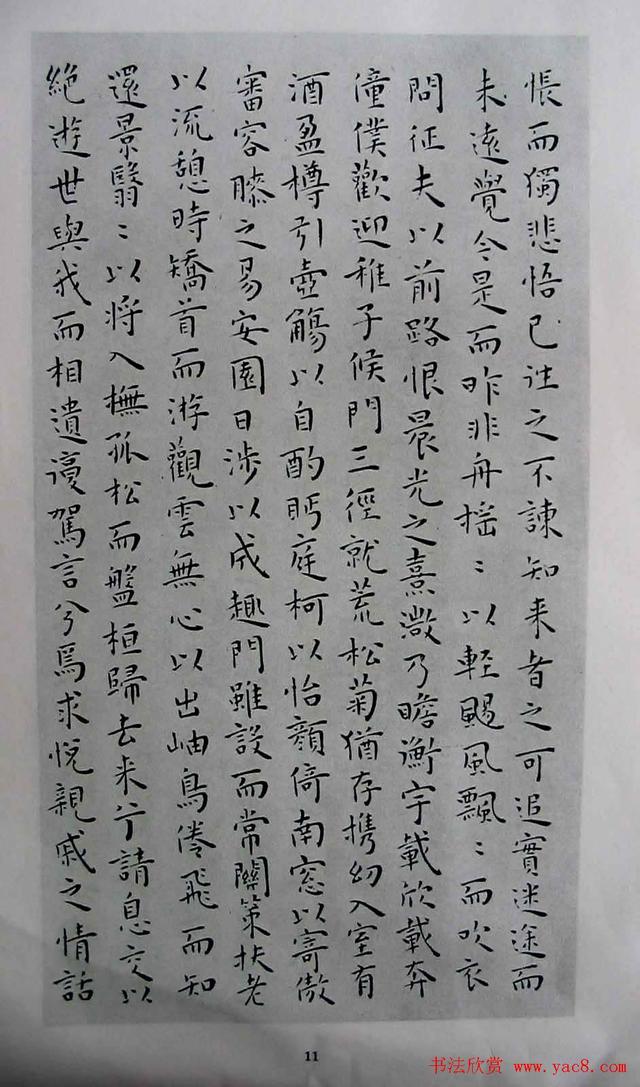 悵而獨悲悟已往之不諫知来者之可追實迷途而
未遠覺今是而昨非舟摇〻以輕颺風飄〻而吹衣
問征夫以前路恨晨光之熹微乃瞻衡宇載欣載奔
僮僕歡迎稚子候門三徑就荒松菊猶存携幼入室有
酒盈樽引壺觴以自酌眄庭柯以怡顏倚南窓以寄傲
審容膝之易安園日涉以成趣門雖設而常關策扶老
以流憩時矯首而游觀雲無心以出岫鳥倦飛而知
還景翳〻以將入撫孤松而盤桓歸去来兮請息交以
絶遊世與我而相遺復駕言兮焉求悅親戚之情話
11
书法欣赏 www.yac8.com